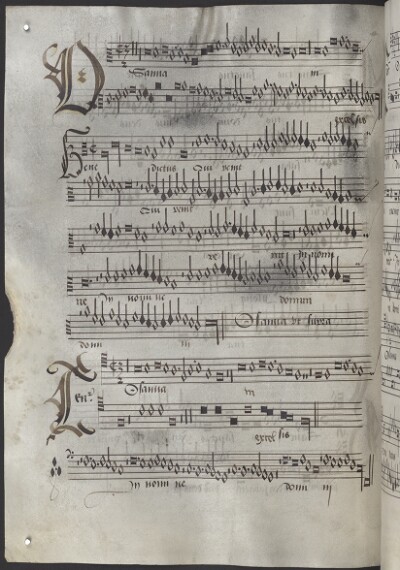 Osanna in
excelsis
Benedictus Qui venit
Qui venit
in nomi
ne In nomine domini
domini Osanna ut supra
Tenor Osanna in
excelsis
In nomine domini